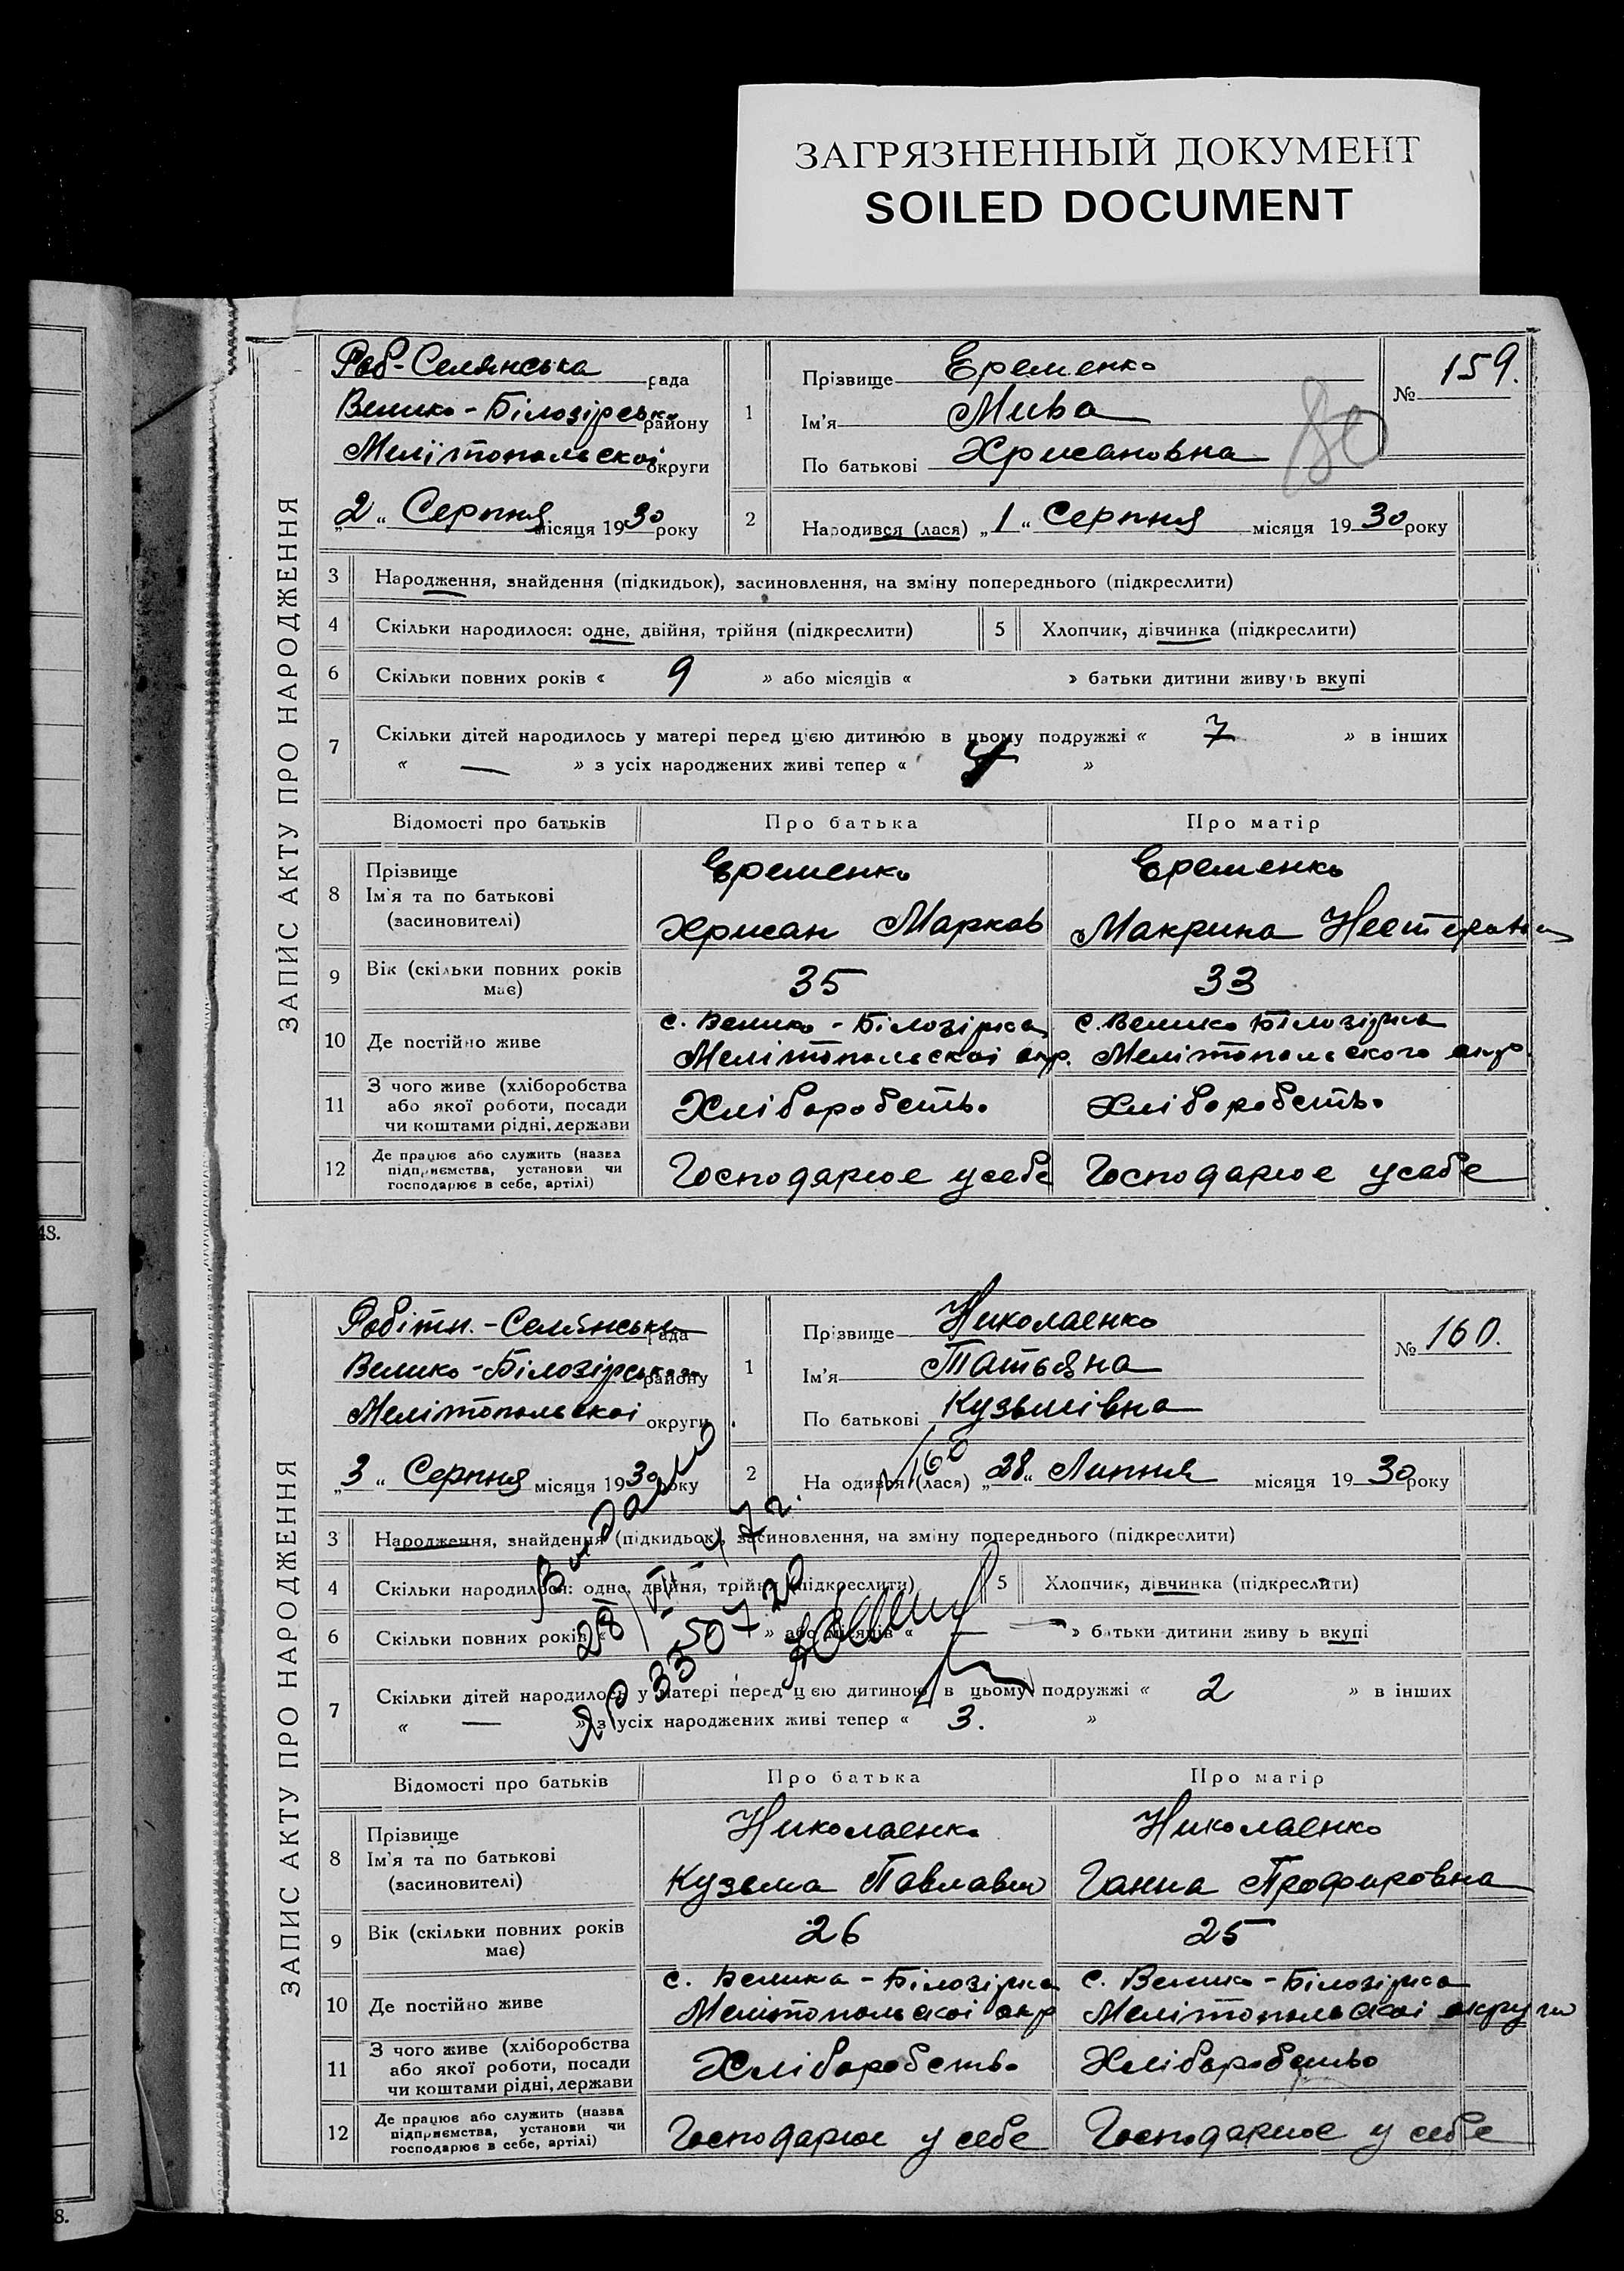 ЗАГРЯЗНЕННЫЙ ДОКУМЕНТ
SOILED DOCUMENT
48.
8.
ЗАПИС АКТУ ПРО НАРОДЖЕННЯ
Роб-Селянська рада
Велико-Білозірсько району
Мелітопольскоі округи
„2“ Серпня місяця 1930 року
1
Прізвище Еременко
Ім'я Мива
По батькові Хрисановна
№ 159.
80
2
Народився (лася) „1“ Серпня місяця 1930 року
3 Народження, знайдення (підкидьок), засиновлення, на зміну попереднього (підкреслити)
4 Скільки народилося: одне, двійня, трійня (підкреслити) 5 Хлопчик, дівчинка (підкреслити)
6 Скільки повних років « 9 » або місяців « » батьки дитини живуть вкупі
7 Скільки дітей народилось у матері перед цією дитиною в цьому подружжі « 7 » в інших
« — » з усіх народжених живі тепер « »
Відомості про батьків Про батька Про матір
8 Прізвище
Ім'я та по батькові
(засиновителі)
Еременко Еременко
Хрисан Марков Макрина Нестеровна
9 Вік (скільки повних років має) 35 33
10 Де постійно живе
с. Велико-Білозірка с. Велико Білозірка
Мелітопольскоі окр. Мелітопольского окр.
11 З чого живе (хліборобства
або якої роботи, посади
чи коштами рідні, держави
Хліборобство Хліборобство
12 Де працює або служить (назва
підприємства, установи чи
господарює в себе, артілі)
Господарює усебе Господарює усебе
ЗАПИС АКТУ ПРО НАРОДЖЕННЯ
Робітн.-Селянська рада
Велико-Білозірського району
Мелітопольскоі округи
„3“ Серпня місяця 1930 року
1
Прізвище Николаенко
Ім'я Татьяна
По батькові Кузьмівна
№ 160.
2
Народився (лася) „28“ Липня місяця 1930 року
3 Народження, знайдення (підкидьок), засиновлення, на зміну попереднього (підкреслити)
4 Скільки народилося: одне, двійня, трійня (підкреслити) 5 Хлопчик, дівчинка (підкреслити)
6 Скільки повних років « » або місяців « — » батьки дитини живуть вкупі
7 Скільки дітей народилось у матері перед цією дитиною в цьому подружжі « 2 » в інших
« — » з усіх народжених живі тепер « 3. »
Відомості про батьків Про батька Про матір
8 Прізвище
Ім'я та по батькові
(засиновителі)
Николаенко Николаенко
Кузьма Павлавич Ганна Профировна
9 Вік (скільки повних років має) 26 25
10 Де постійно живе
с. Велика-Білозірка с. Велико-Білозірка
Мелітопольскоі окр Мелітопольскоі округи
11 З чого живе (хліборобства
або якої роботи, посади
чи коштами рідні, держави
Хліборобство Хліборобство
12 Де працює або служить (назва
підприємства, установи чи
господарює в себе, артілі)
Господарює у себе Господарює у себе